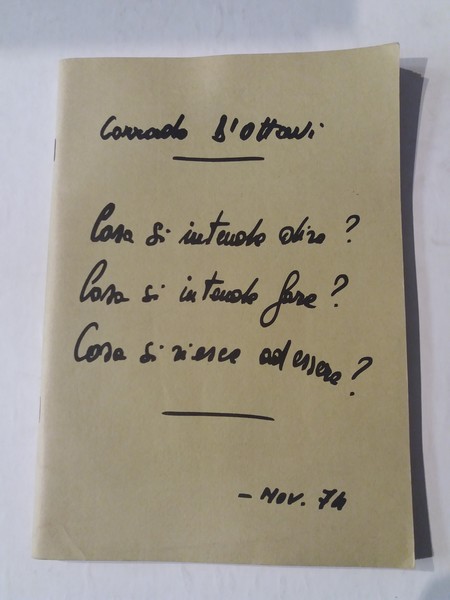 Corrado D'Ottavi
Cosa si intende dire?
Cosa si intende fare?
Cosa si riesce ad essere?
- Nov. 74